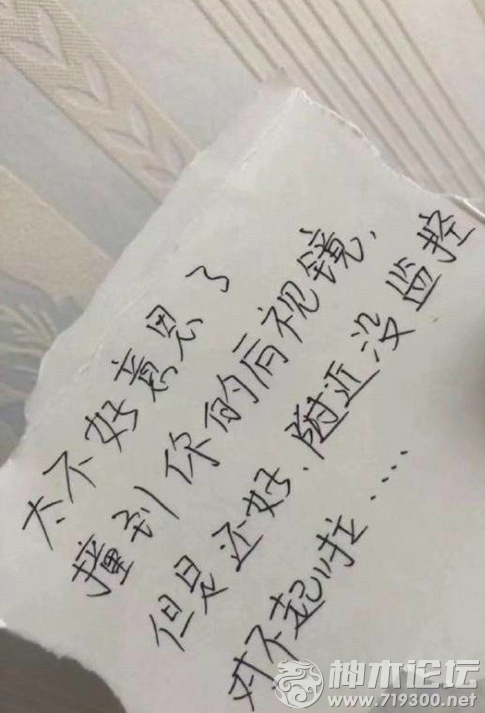 太不好意思了
撞到你的后视镜,
但是还好、附近没监控
对不起啦....
神木论坛
www.719300.net